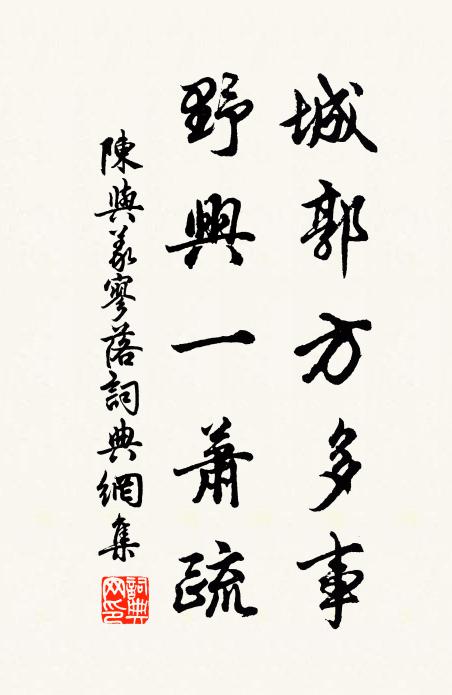 城郭方多事
野興一蕭疏
陳與義寥落詞典網集
詞典網印